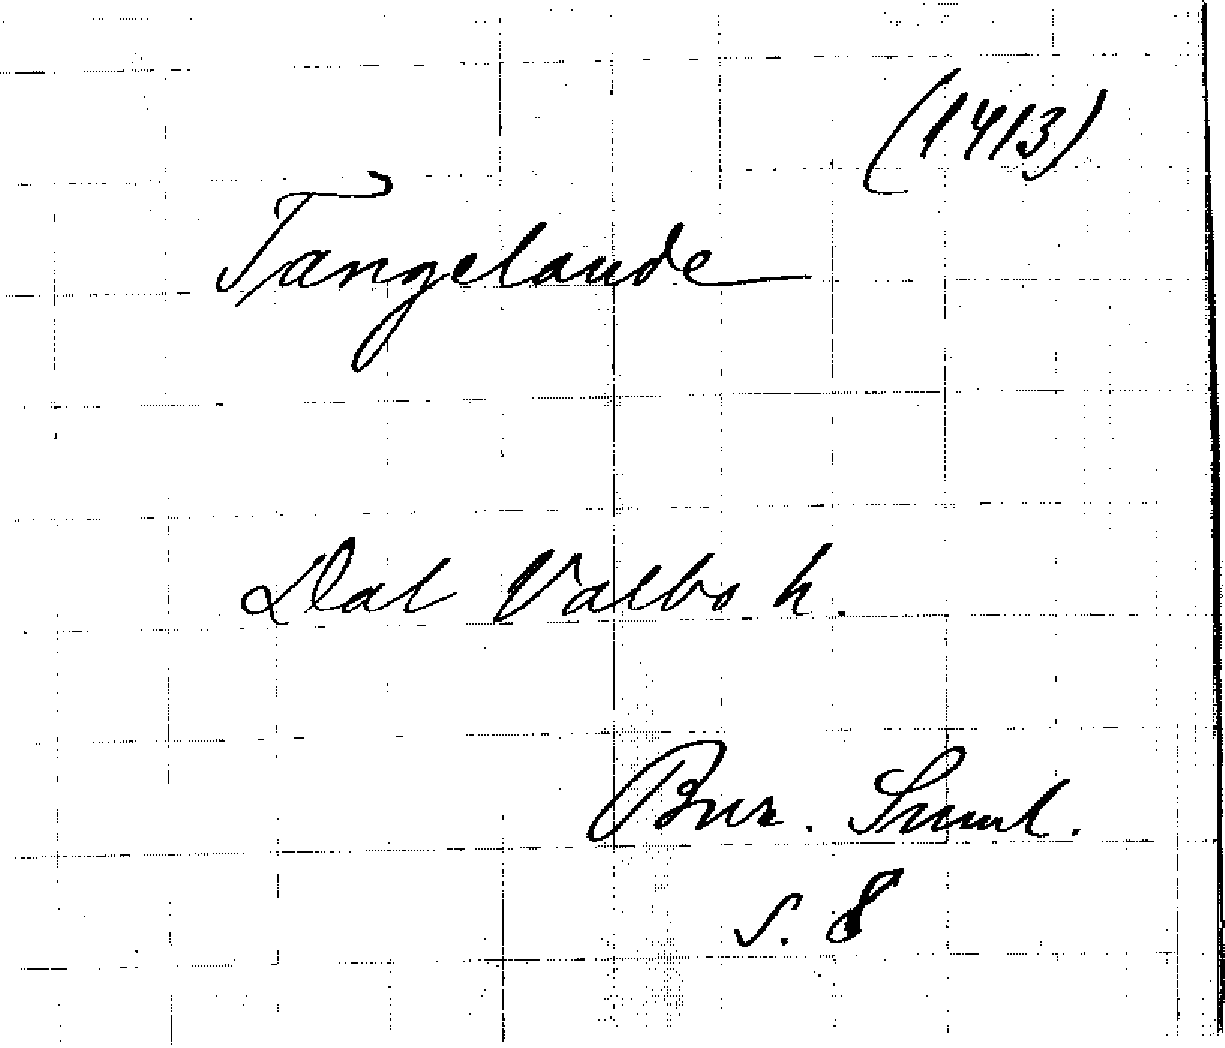 (1413)
Tangelande
Dal Valbo h.
Bur. Suml.
s. 8